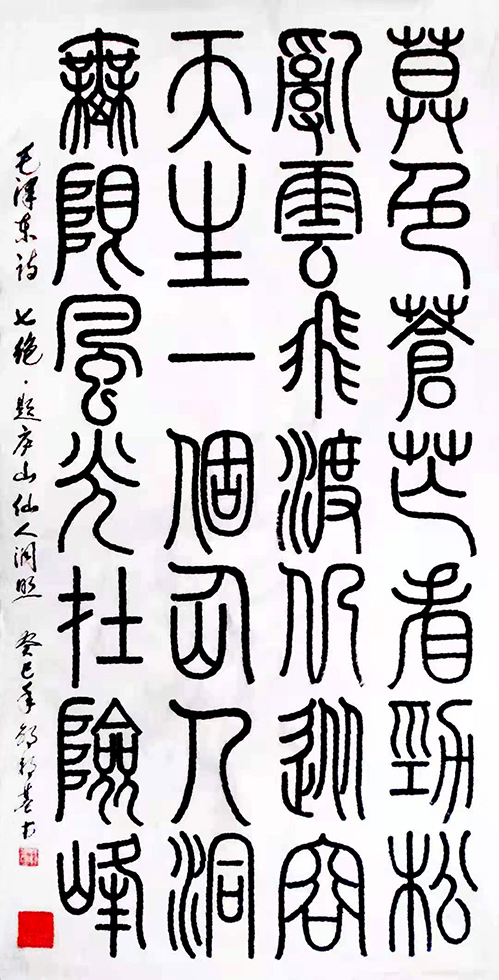 暮色蒼茫看勁松
亂雲飛渡仍從容
天生一個仙人洞
無限風光在險峰
毛泽东诗 七绝·题庐山仙人洞照 癸巳年 书